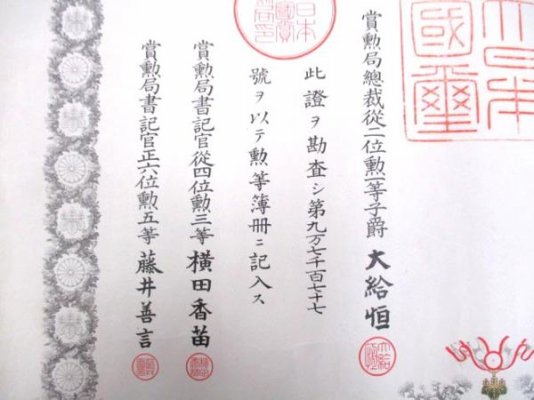 大日本國璽
賞勲局總裁從二位勲一等子爵 大給恒
日本國賞勲局印
此證ヲ勘査シ第九万七千百七十七
號ヲ以テ勲等簿册ニ記入ス
賞勲局書記官從四位勲三等 横田香苗
賞勲局書記官正六位勲五等 藤井善言